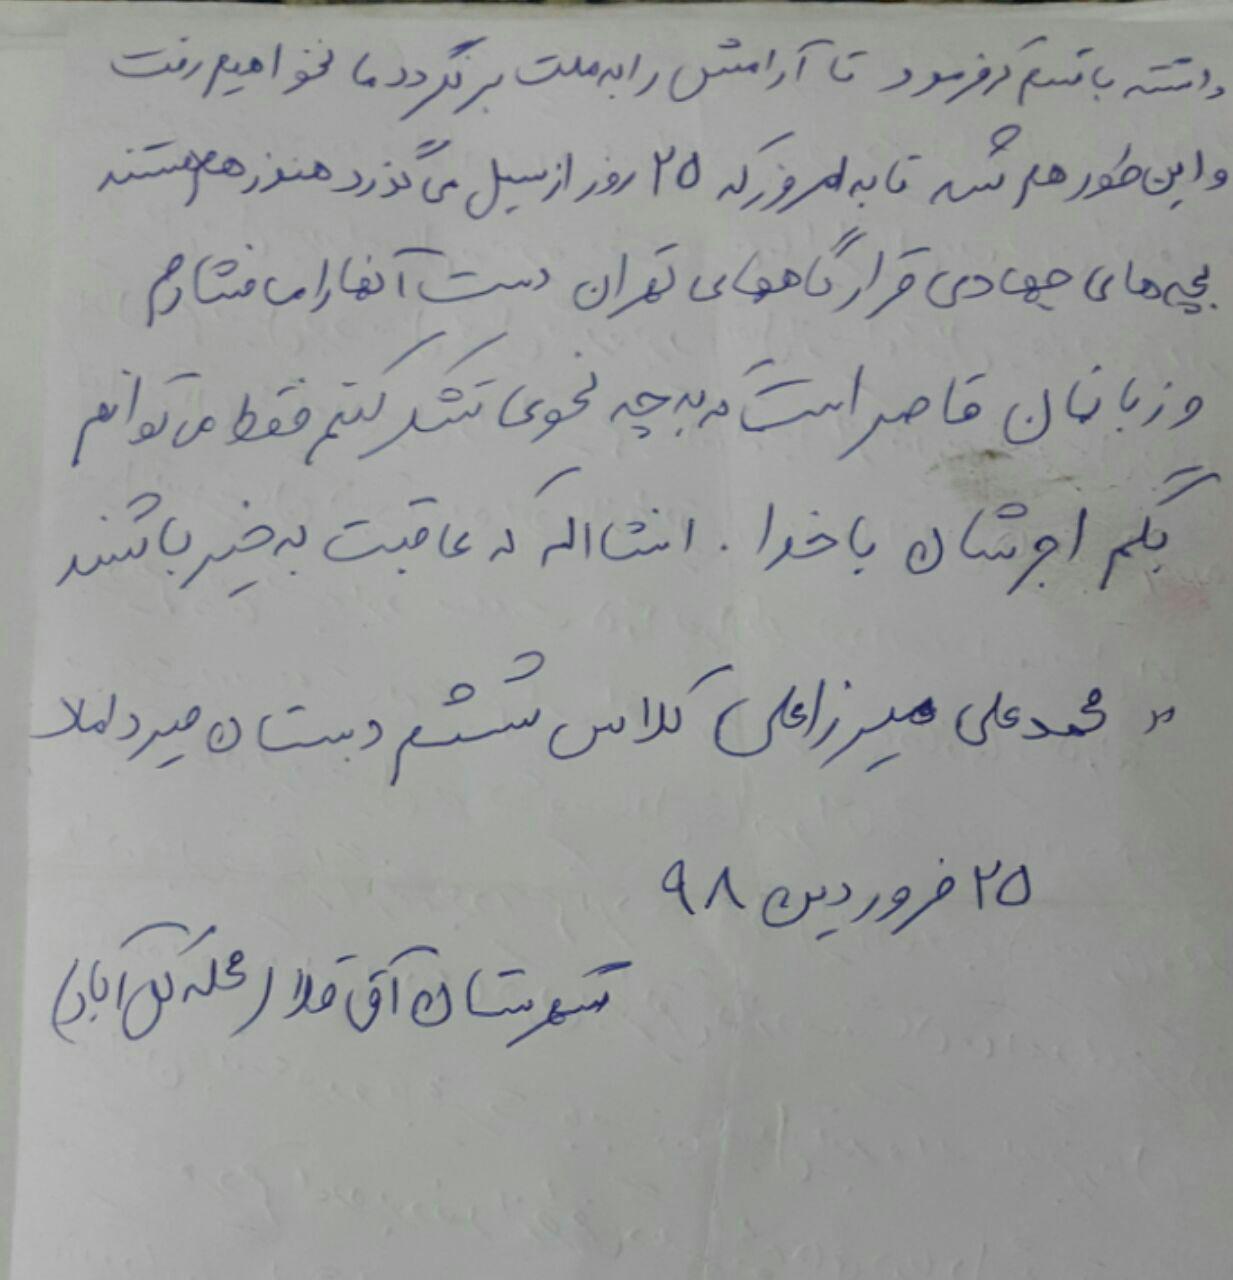 داشته با تبسم فرمود تا آرامش را به ملت برنگردد ما نخواهیم رفت
و این طور هم شد تا به امروز که ۲۵ روز از سیل می گذرد هنوز هم هستند
بچه های جهادی قرارگاههای تهران دست آنها را می فشارم
و زبانمان قاصر است که به چه نحوی تشکر کنم فقط می توانم
بگم اجرشان با خدا . انشااله که عاقبت به خیر باشند
محمد علی میرزاعلی کلاس ششم دبستان میرداملا
۲۵ فروردین ۹۸
شهرستان آق قلا (محله گل آباد)